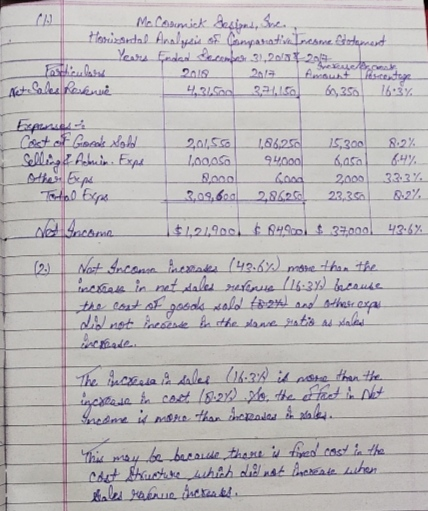 (1)
McCormick Designs, Inc.
Horizontal Analysis of Comparative Income Statement
Years Ended December 31, 2018 & 2017
Particulars 2018 2017 Increase/Decrease Amount Percentage
Net Sales Revenue 4,31,500 3,71,150 60,350 16.3%
Expenses :-
Cost of Goods Sold 2,01,550 1,86,250 15,300 8.2%
Selling & Admin. Exps 1,00,050 94,000 6,050 6.4%
Other Exps 8,000 6,000 2,000 33.3%
Total Exps 3,09,600 2,86,250 23,350 8.2%
Net Income $1,21,900 $ 84900 $ 37,000 43.6%
(2.) Net Income increases (43.6%) more than the
increase in net sales revenue (16.3%) because
the cost of goods sold (8.2%) and other exps
did not increase in the same ratio as sales
increase.
The increase in sales (16.3%) is more than the
increase in cost (8.2%) So the effect in Net
Income is more than increases in sales.
This may be because there is fixed cost in the
cost structure which did not increase when
sales revenue increases.